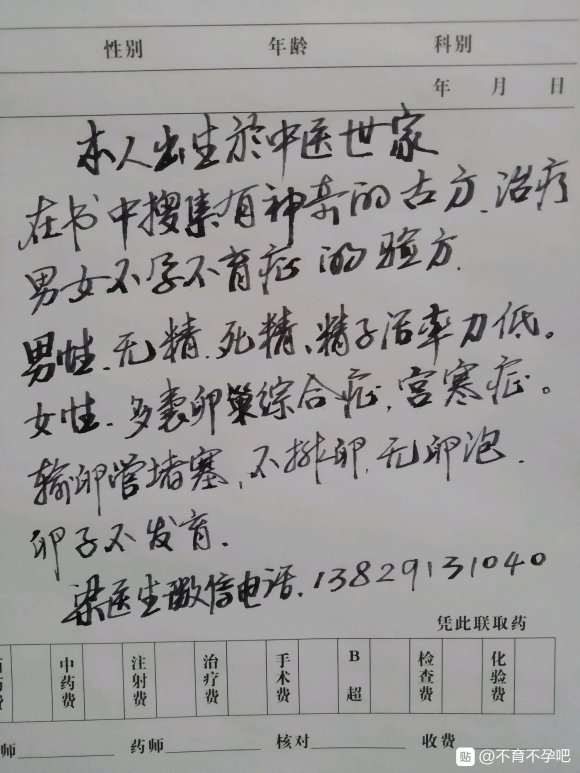 性别 年龄 科别
年 月 日
本人出生於中医世家
在书中搜集有神奇的古方、治疗
男女不孕不育症的验方.
男性.无精.死精、精子活率力低。
女性.多囊卵巢综合症,宫寒症。
输卵管堵塞,不排卵,无卵泡.
卵子不发育.
梁医生微信电话.13829131040
凭此联取药
药费 中药费 注射费 治疗费 手术费 B超 检查费 化验费
师 药师 核对 收费
贴 @不育不孕吧